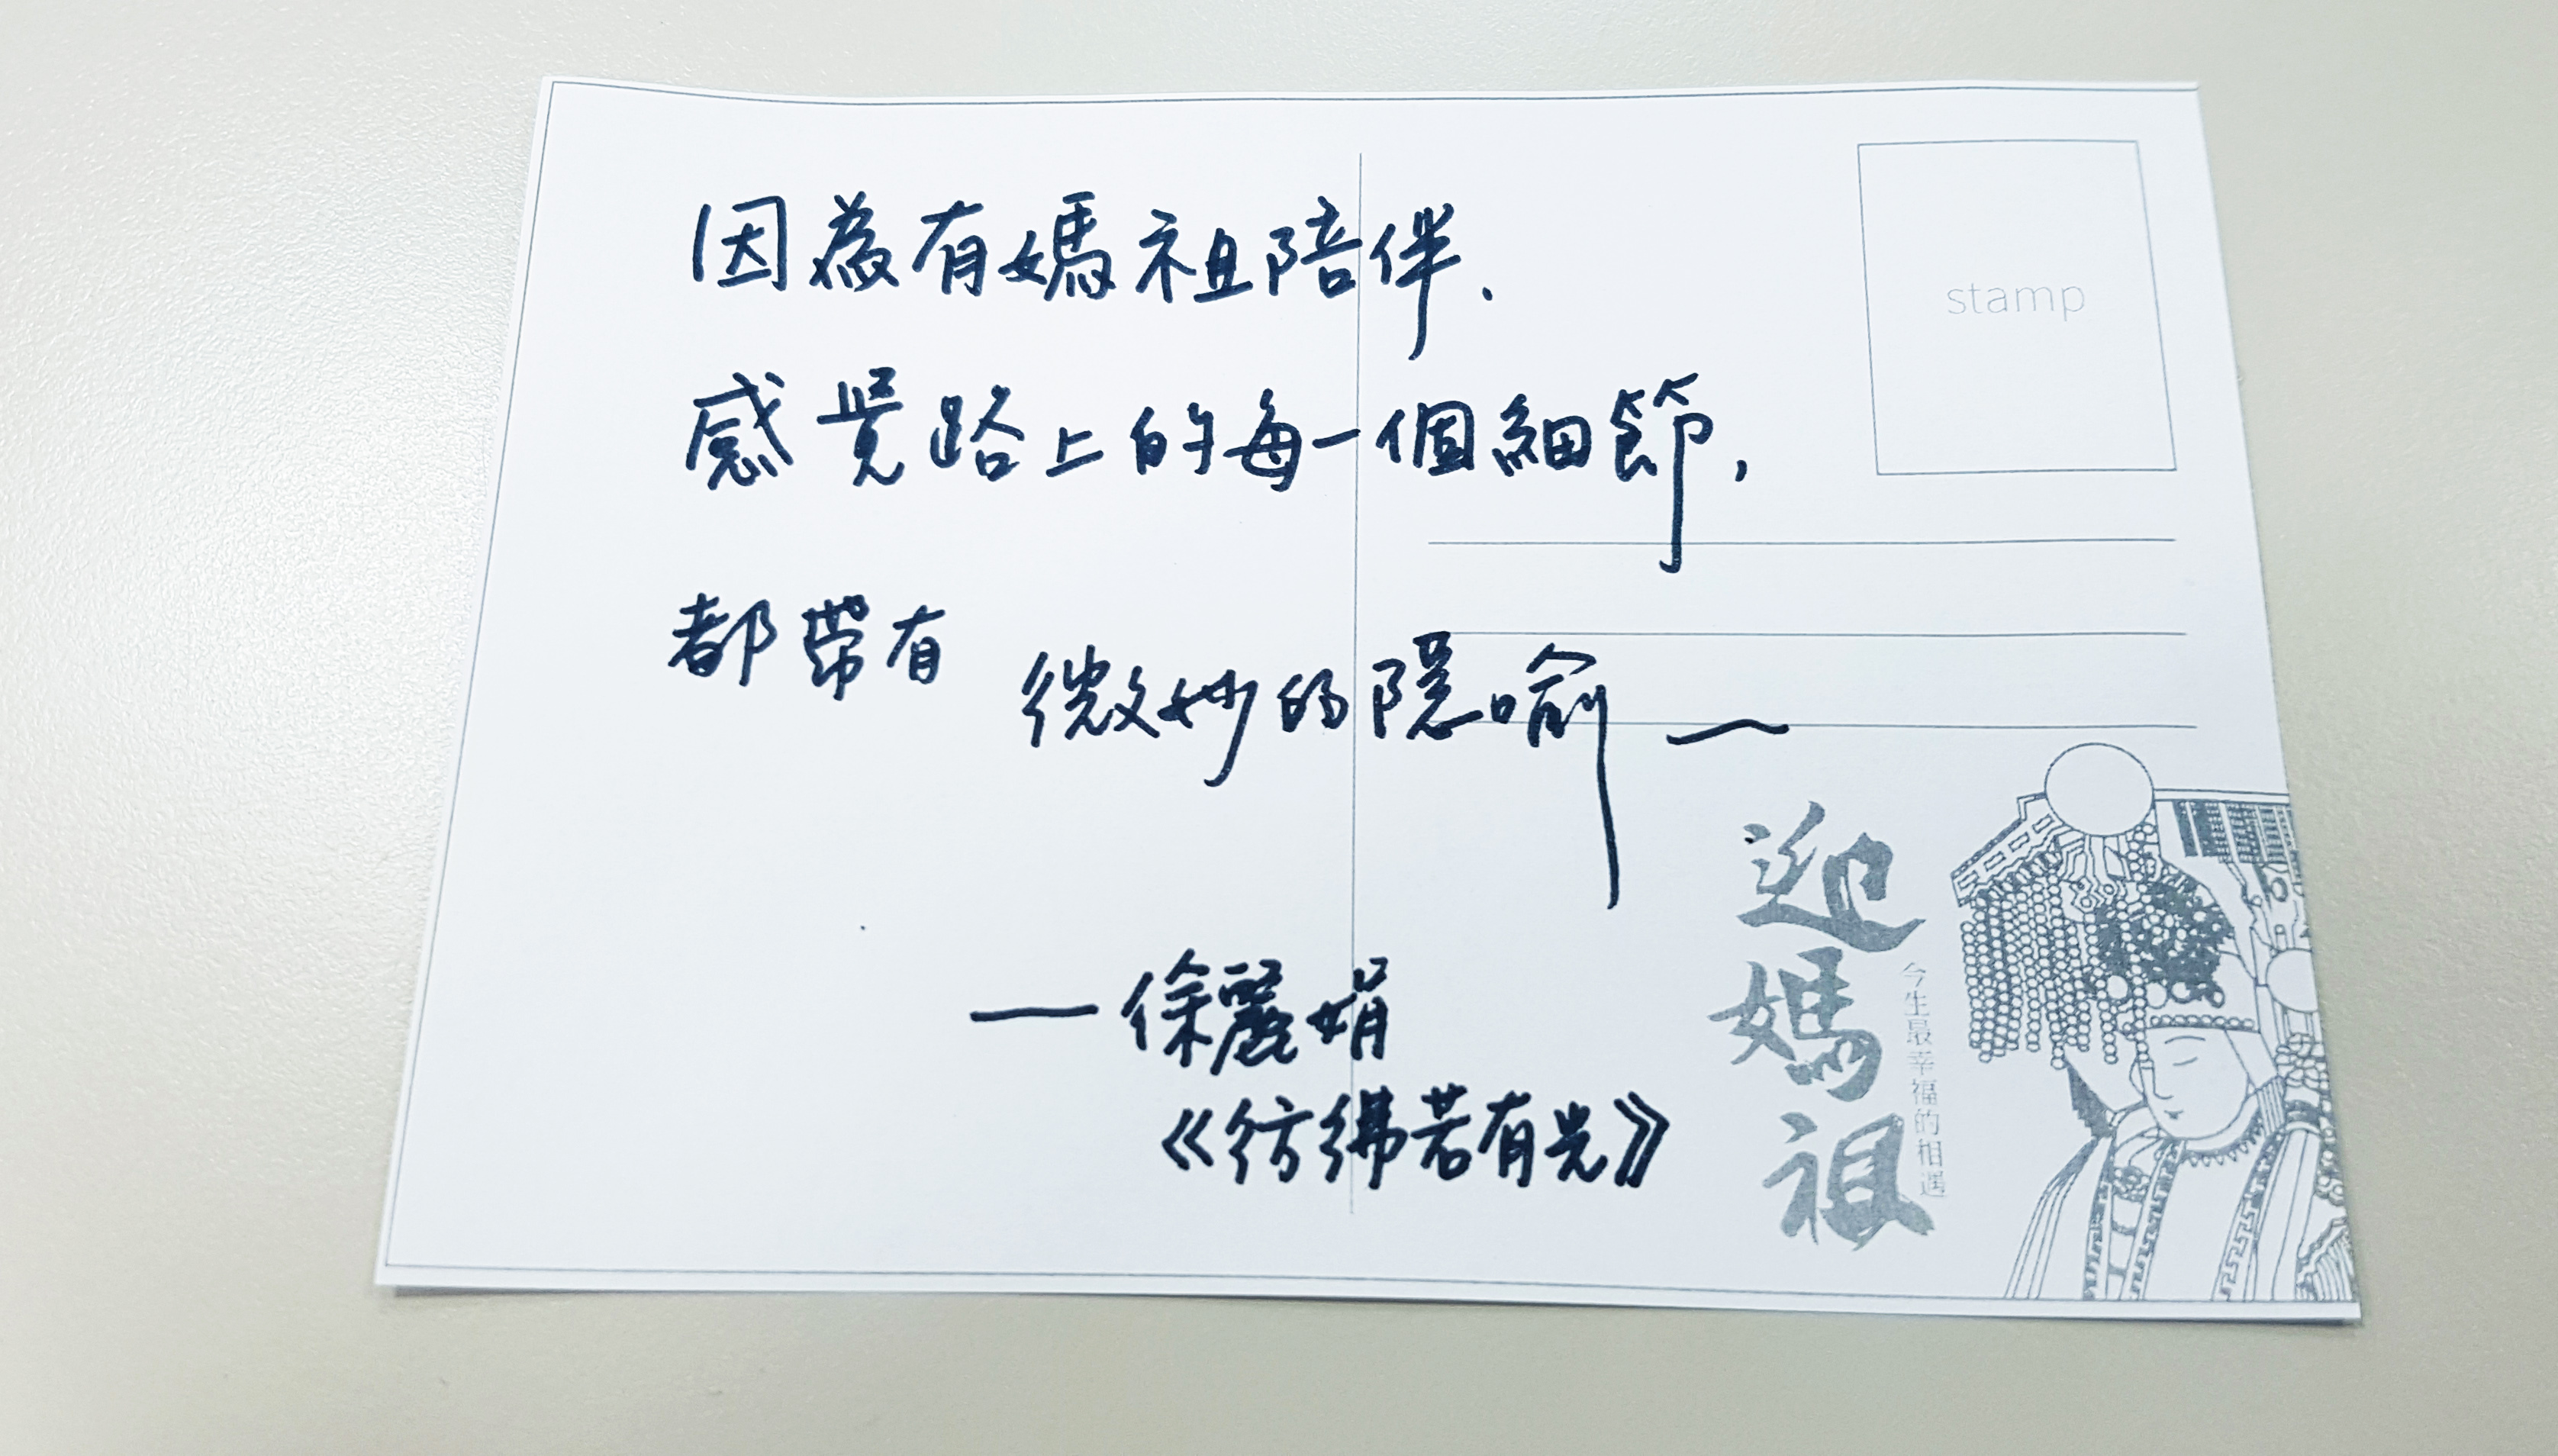 因為有媽祖陪伴.
感覺路上的每一個細節,
都帶有 微妙的隱喻～
—徐麗娟
《彷彿若有光》
stamp
迎媽祖
今生最幸福的相遇